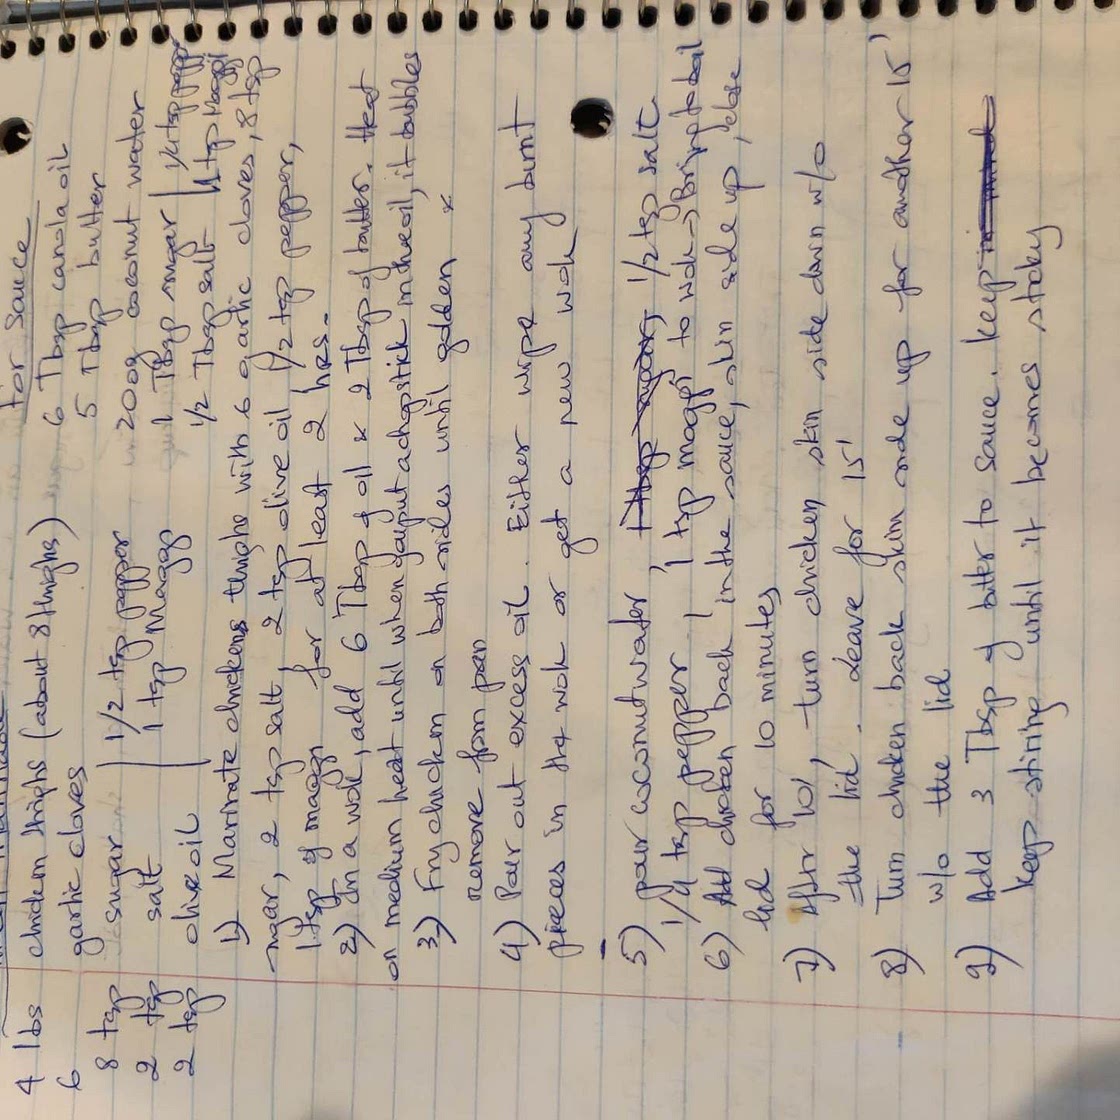 For Sauce
4 lbs chicken thighs (about 8 thighs)
6 garlic cloves
8 tsp sugar | 1/2 tsp pepper
2 tsp salt | 1 tsp Maggi
2 tsp olive oil
6 Tbsp canola oil
5 Tbsp butter
200g coconut water
1 Tbsp sugar | 1/4 tsp pepper
1/2 Tbsp salt | 1 tsp Maggi
1) Marinate chickens thighs with 6 garlic cloves, 8 tsp
sugar, 2 tsp salt 2 tsp olive oil 1/2 tsp pepper,
1 tsp of maggi for at least 2 hrs.
2) In a wok, add 6 Tbsp of oil & 2 Tbsp of butter. Heat
on medium heat until when you put a chopstick in the oil, it bubbles
3) Fry chicken on both sides until golden &
remove from pan
4) Pour out excess oil. Either wipe any burnt
pieces in the wok or get a new wok
5) pour coconut water 1 Tbsp sugar, 1/2 tsp salt
1/4 tsp pepper, 1 tsp maggi to wok → Bring to boil
6) Add chicken back in the sauce, skin side up, close
lid for 10 minutes
7) After 10', turn chicken skin side down w/o
the lid. Leave for 15'
8) Turn chicken back skin side up for another 15'
w/o the lid
9) Add 3 Tbsp of butter to sauce. Keep
keep stiring until it becomes sticky